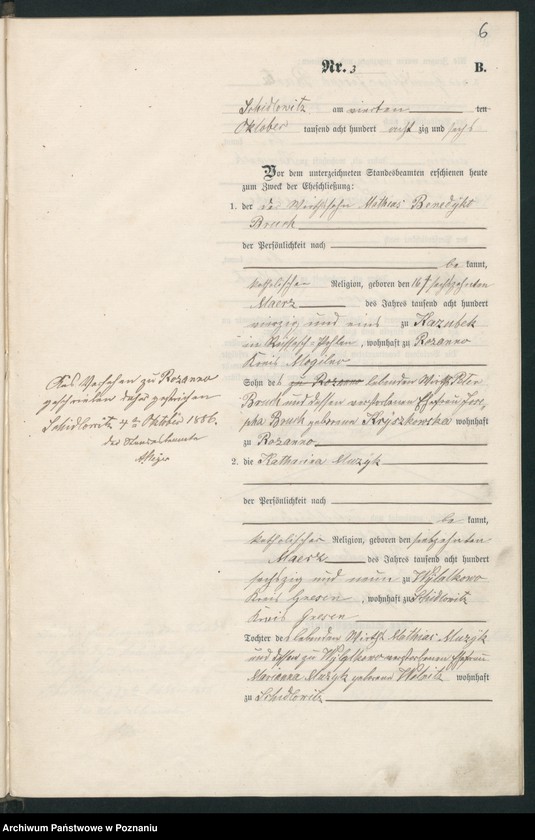 6
Nr. 3 B.
Schidlowitz am vierten ten
Oktober tausend acht hundert acht zig und sechs
Vor dem unterzeichneten Standesbeamten erschienen heute
zum Zweck der Eheschließung:
1. der Wirthssohn Mathias Benedykt
Bruch
der Persönlichkeit nach
be kannt,
katholischer Religion, geboren den sechszehnten
Maerz des Jahres tausend acht hundert
vierzig und eins zu Kazubek
in Russisch-Pohlen, wohnhaft zu Rozanno
Kreis Mogilno
Sohn des zu Rozanno lebenden Wirths Peter
Bruch und dessen verstorbenen Ehefrau Jose-
pha Bruch geborene wohnhaft
zu Rozanno
Aus Versehen zu Rozanno
geschrieben daher gestrichen
Schidlowitz 4ten Oktober 1886.
der Standesbeamte
2. die Katharina Muzyk
der Persönlichkeit nach
be kannt,
katholischer Religion, geboren den siebzehnten
Maerz des Jahres tausend acht hundert
sechszig und neun zu Wylatkowo
Kreis Gnesen, wohnhaft zu Schidlowitz
Kreis Gnesen
Tochter des lebenden Wirths Mathias Muzyk
und dessen zu Wylatkowo verstorbenen Ehefrau
Marianna Muzyk geborene wohnhaft
zu Schidlowitz
Archiwum Państwowe w Poznaniu